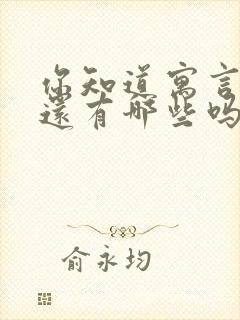 你知道寓言
還有哪些吗
俞永均